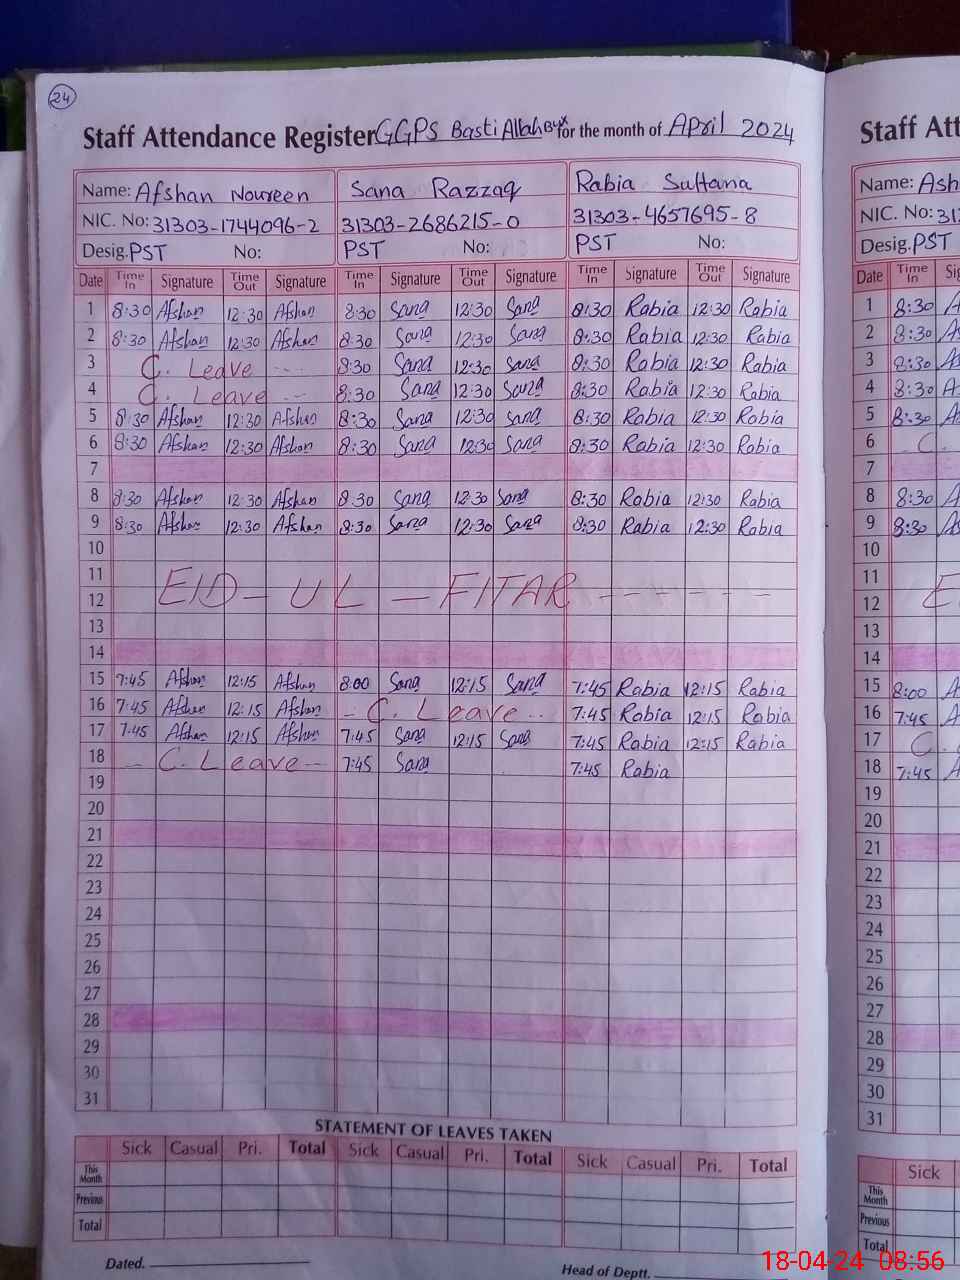 24
Staff Attendance Register GGPS Basti Allah Bux for the month of April 2024
Name: Afshan Noureen Sana Razzaq Rabia Sultana
NIC. No: 31303-1744096-2 31303-2686215-0 31303-4657695-8
Desig. PST No: PST No: PST No:
Date Time In Signature Time Out Signature Time In Signature Time Out Signature Time In Signature Time Out Signature
1 8:30 Afshan 12:30 Afshan 8:30 Sana 12:30 Sana 8:30 Rabia 12:30 Rabia
2 8:30 Afshan 12:30 Afshan 8:30 Sana 12:30 Sana 8:30 Rabia 12:30 Rabia
3 C. Leave --- 8:30 Sana 12:30 Sana 8:30 Rabia 12:30 Rabia
4 C. Leave -- 8:30 Sana 12:30 Sana 8:30 Rabia 12:30 Rabia
5 8:30 Afshan 12:30 Afshan 8:30 Sana 12:30 Sana 8:30 Rabia 12:30 Rabia
6 8:30 Afshan 12:30 Afshan 8:30 Sana 12:30 Sana 8:30 Rabia 12:30 Rabia
7
8 8:30 Afshan 12:30 Afshan 8:30 Sana 12:30 Sana 8:30 Rabia 12:30 Rabia
9 8:30 Afshan 12:30 Afshan 8:30 Sana 12:30 Sana 8:30 Rabia 12:30 Rabia
10
11
EID - UL - FITAR ------
12
13
14
15 7:45 Afshan 12:15 Afshan 8:00 Sana 12:15 Sana 7:45 Rabia 12:15 Rabia
16 7:45 Afshan 12:15 Afshan - C. Leave -- 7:45 Rabia 12:15 Rabia
17 7:45 Afshan 12:15 Afshan 7:45 Sana 12:15 Sana 7:45 Rabia 12:15 Rabia
18 - C. Leave -- 7:45 Sana 7:45 Rabia
19
20
21
22
23
24
25
26
27
28
29
30
31
STATEMENT OF LEAVES TAKEN
Sick Casual Pri. Total Sick Casual Pri. Total Sick Casual Pri. Total
This Month
Previous
Total
Dated. Head of Deptt.
Staff Att
Name: Ash
NIC. No: 31
Desig. PST
Date Time In
1 8:30
2 8:30
3 8:30
4 8:30
5 8:30
6 C.
7
8 8:30
9 8:30
10
11
12 E
13
14
15 8:00
16 7:45
17 C.
18 7:45
19
20
21
22
23
24
25
26
27
28
29
30
31
Sick
This Month
Previous
Total
18-04-24 08:56